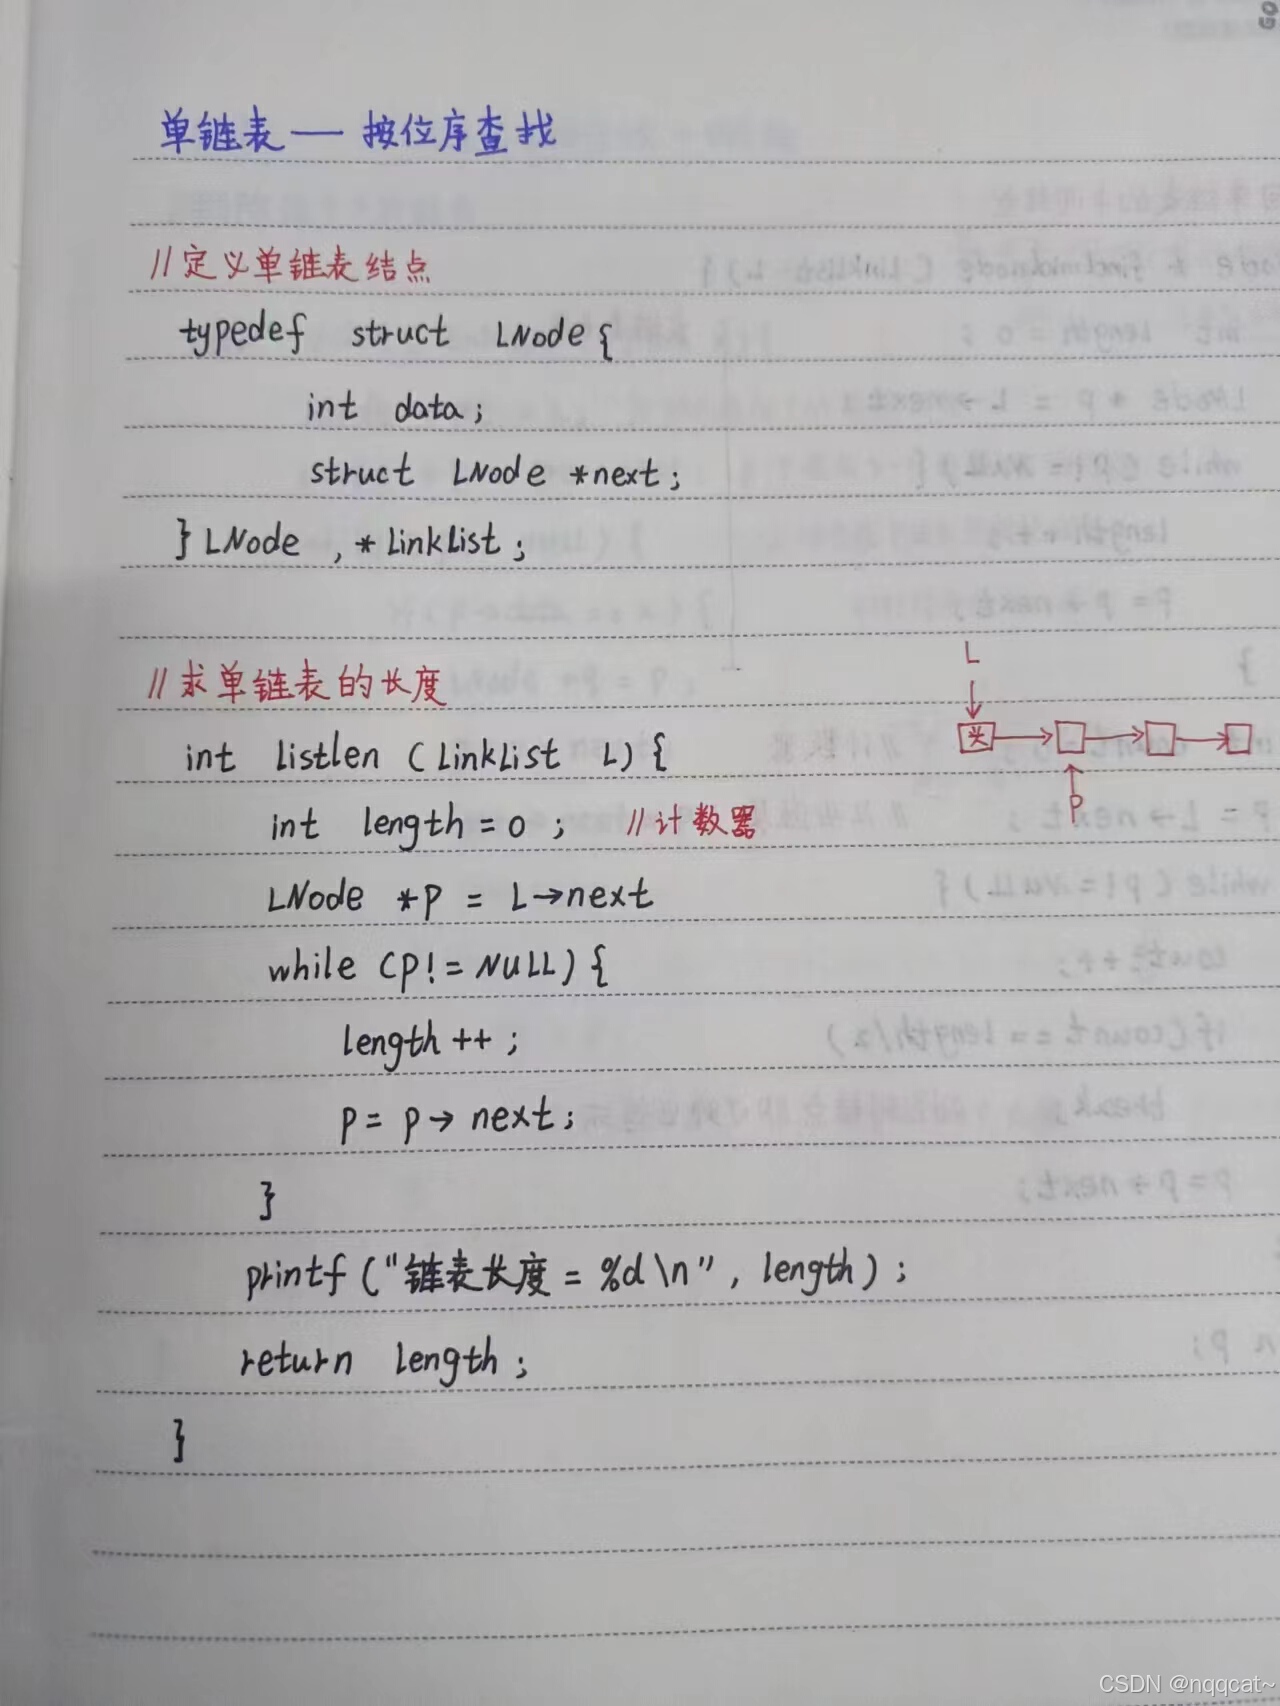 单链表 — 按位序查找
//定义单链表结点
typedef struct LNode{
int data;
struct LNode *next;
} LNode , * LinkList ;
//求单链表的长度
int listlen (LinkList L){
int length = 0 ; //计数器
LNode *p = L→next
while (p! = NULL){
length ++ ;
p = p → next;
}
printf ("链表长度 = %d \n" , length) ;
return length ;
}
L
头
p
CSDN @nqqcat~